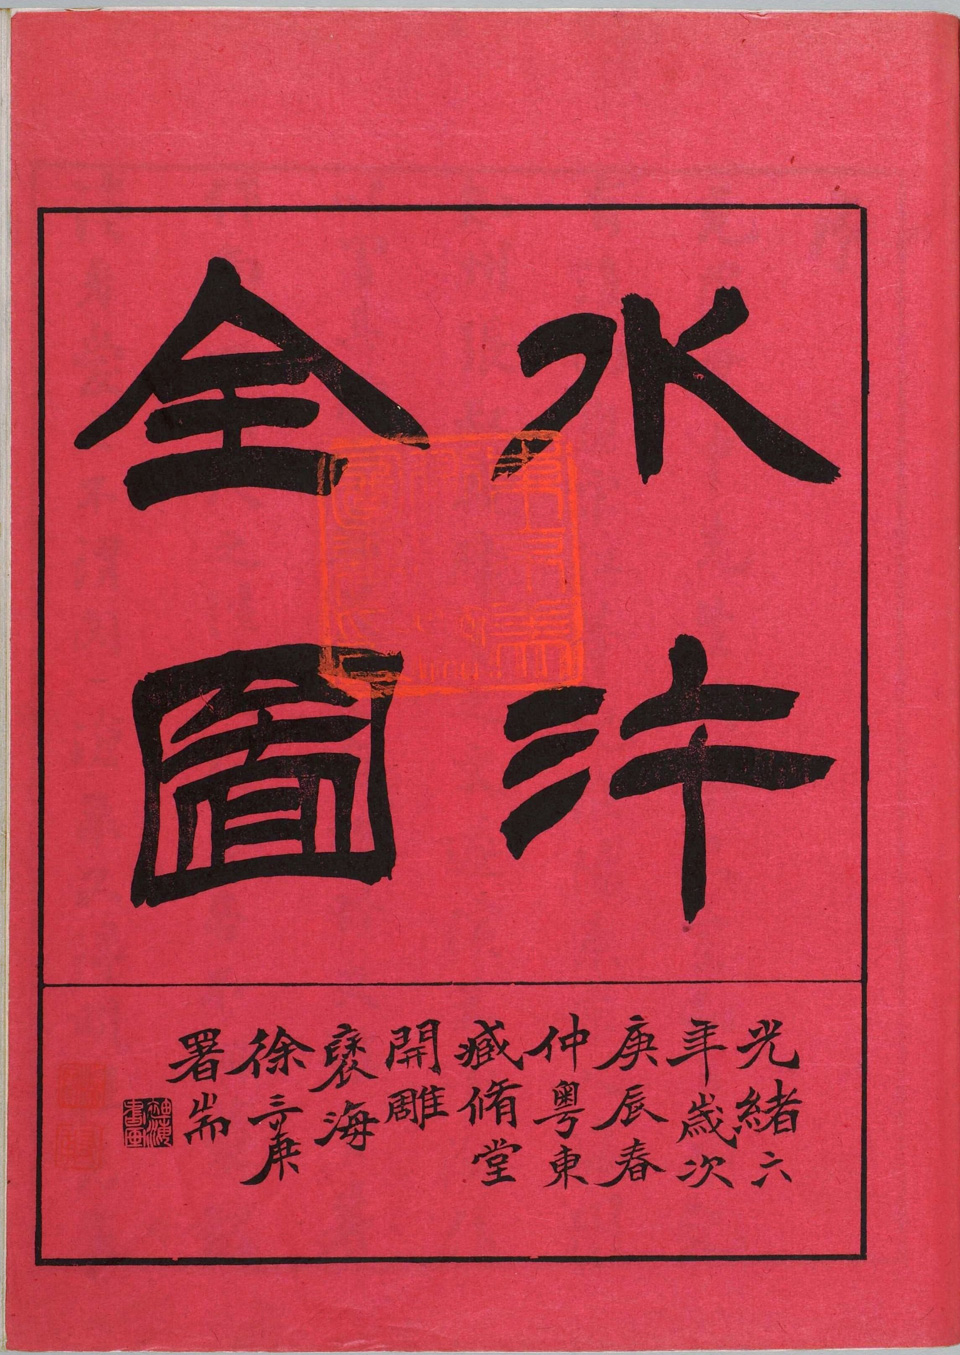 水汻
全圖
光緒六
年歲次
庚辰春
仲粵東
臧脩堂
開雕
褎海
徐三庚
署耑